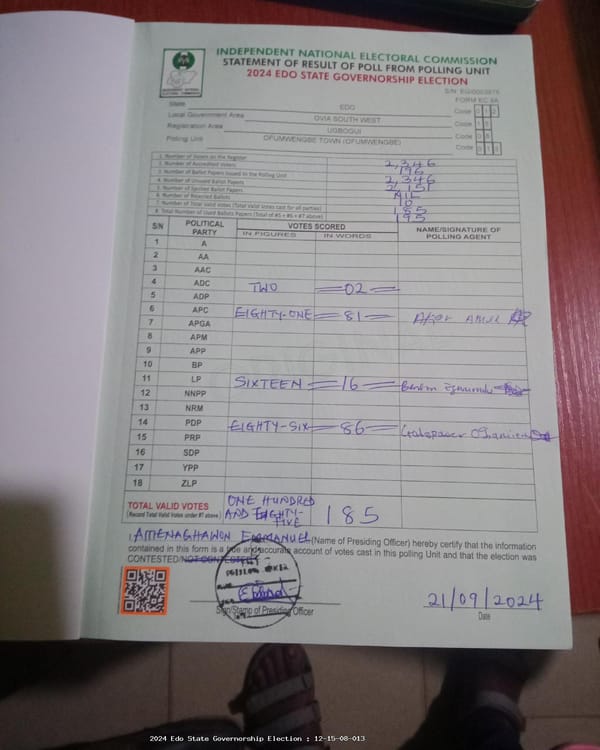 INDEPENDENT NATIONAL ELECTORAL COMMISSION
STATEMENT OF RESULT OF POLL FROM POLLING UNIT
2024 EDO STATE GOVERNORSHIP ELECTION
FORM EC 8A
State EDO Code
Local Government Area OVIA SOUTH WEST Code
Registration Area UGBOGUI Code
Polling Unit OFUMWENGBE TOWN (OFUMWENGBE) Code
1. Number of Voters on the Register 2,346
2. Number of Accredited Voters 196
3. Number of Ballot Papers Issued to the Polling Unit 2,346
4. Number of Unused Ballot Papers 2,151
5. Number of Spoiled Ballot Papers NIL
6. Number of Rejected Ballots 10
7. Number of Total Valid Votes (Total Valid Votes cast for all parties) 185
8. Total Number of Used Ballots Papers (Total of #5 + #6 + #7 above) 195
S/N POLITICAL PARTY VOTES SCORED NAME/SIGNATURE OF POLLING AGENT
IN FIGURES IN WORDS
1 A
2 AA
3 AAC
4 ADC TWO 02
5 ADP
6 APC EIGHTY-ONE 81
7 APGA
8 APM
9 APP
10 BP
11 LP SIXTEEN 16
12 NNPP
13 NRM
14 PDP EIGHTY-SIX 86
15 PRP
16 SDP
17 YPP
18 ZLP
TOTAL VALID VOTES ONE HUNDRED AND EIGHTY-FIVE 185
(Record Total Valid Votes under #7 above)
I, AMENAGHAWON EMMANUEL (Name of Presiding Officer) hereby certify that the information
contained in this form is a true and accurate account of votes cast in this polling Unit and that the election was
CONTESTED/NOT CONTESTED
Sign/Stamp of Presiding Officer
21/09/2024
Date
2024 Edo State Governorship Election : 12-15-08-013